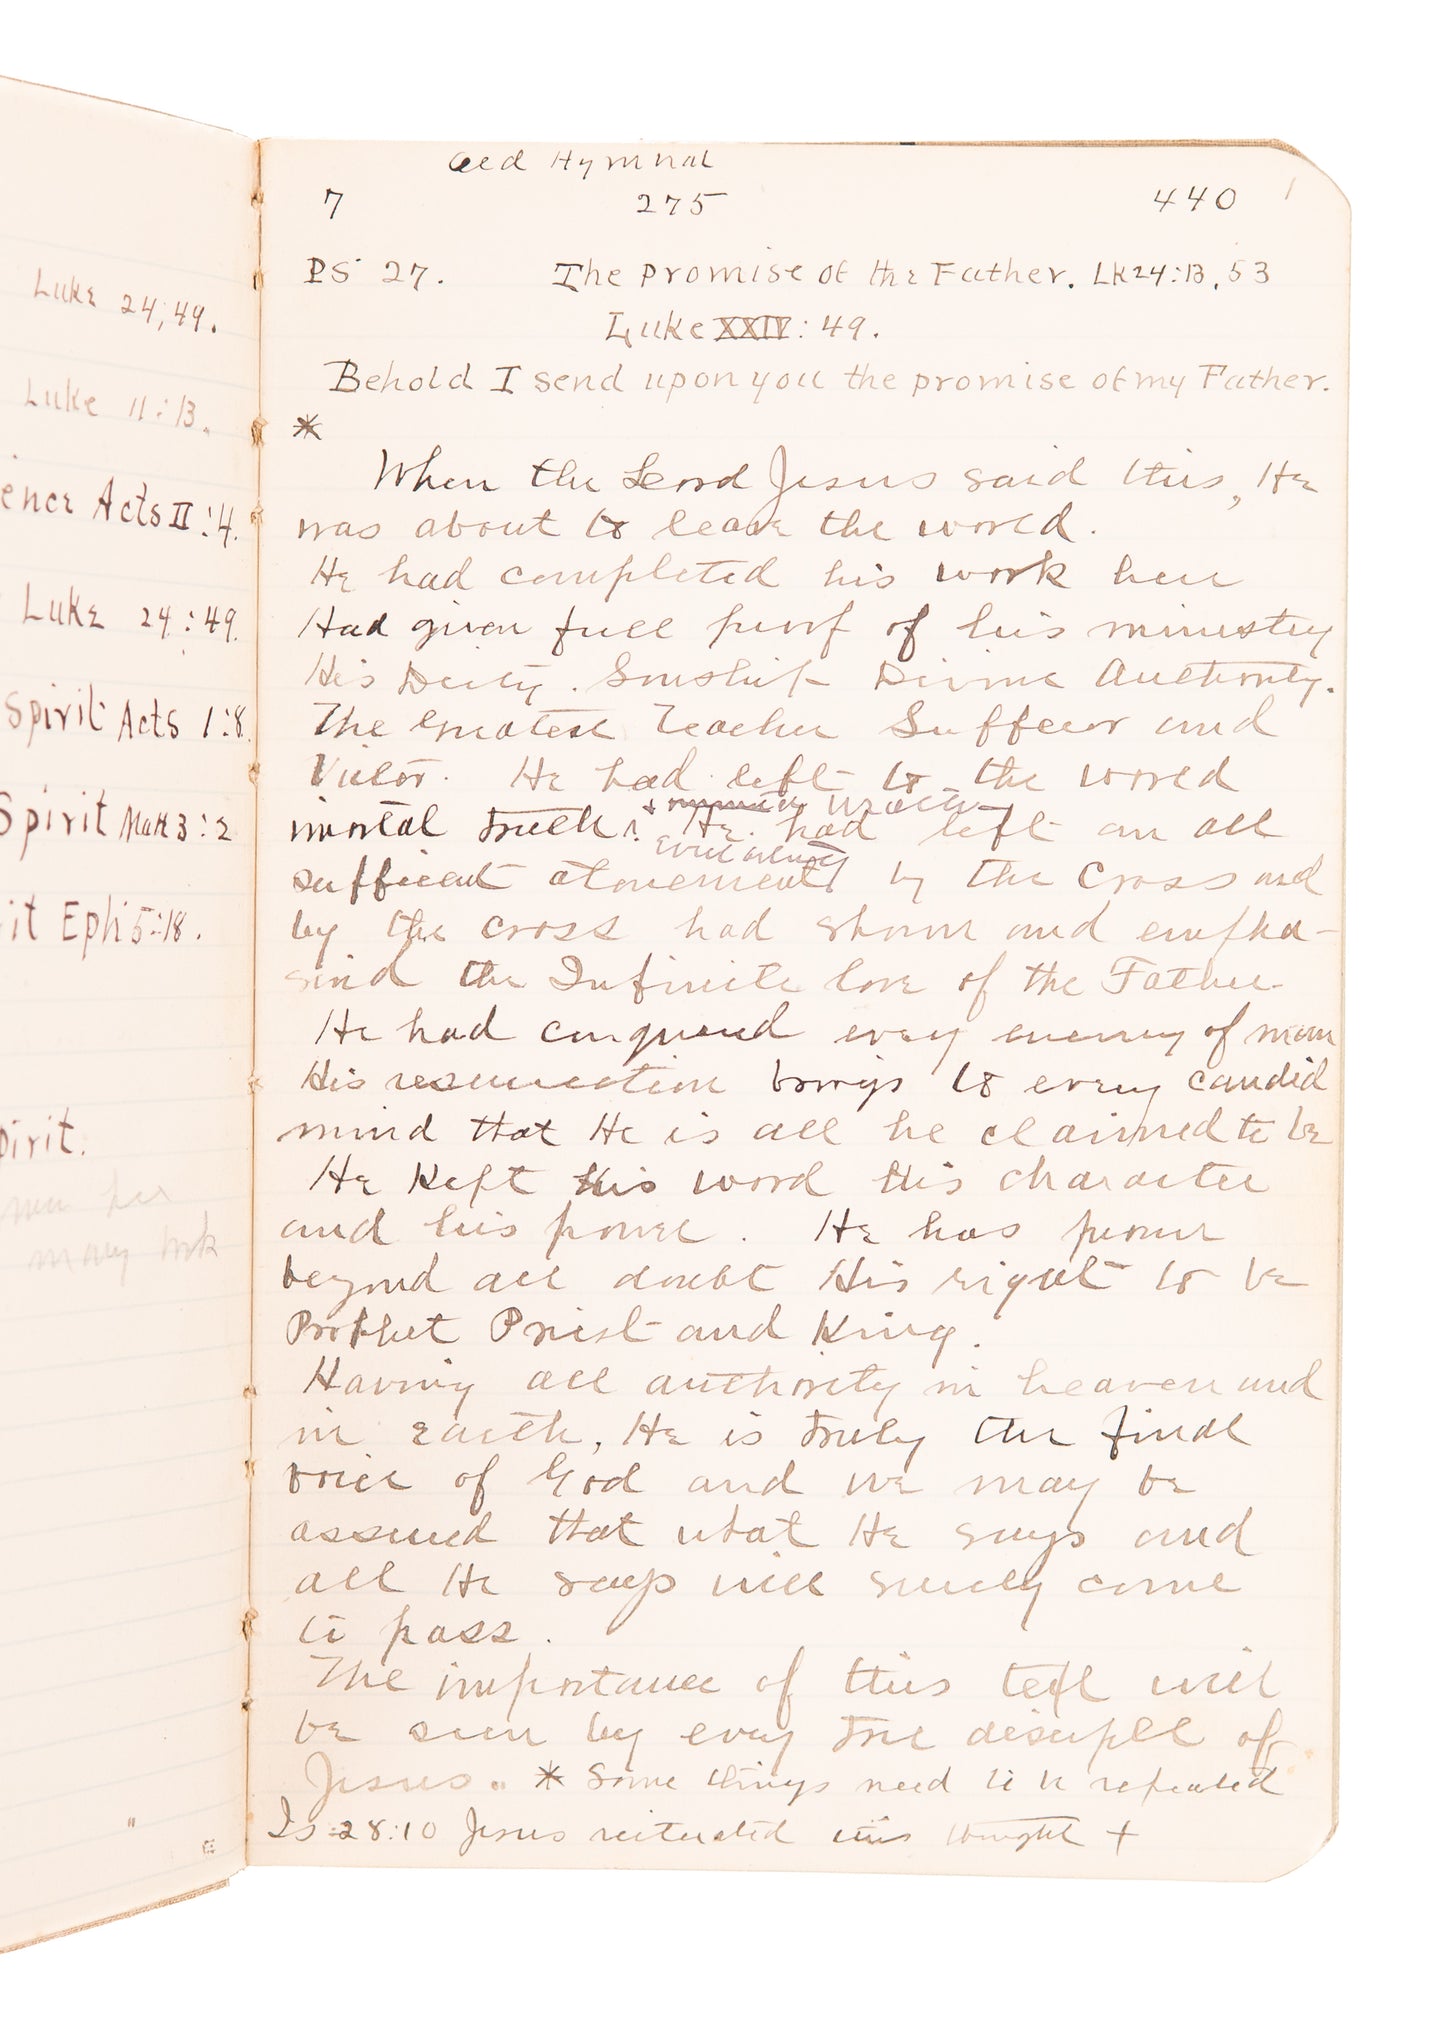 Luke 24;49.
Luke 11:13.
ence Acts II:4.
Luke 24:49.
Spirit Acts 1:8.
Spirit Matt 3:2
it Eph 5:18.
pirit.
many
Old Hymnal
7 275 440 1
PS 27. The promise of the Father. LK24:13,53
Luke XXIV: 49.
Behold I send upon you the promise of my Father.
*
When the Lord Jesus said this, He
was about to leave the world.
He had completed his work here
Had given full proof of his ministry
His Deity. Sonship Divine Authority.
The Greatest Teacher Sufferer and
Victor. He had left to the world
imortal truth. He had left an all
sufficent atonement by the Cross and
by the cross had shown and empha-
sied the Infinite love of the Father
He had conquered every enemy of man
His resurrection brings to every candid
mind that He is all he claimed to be
He Kept his word his character
and his power. He has proven
beyond all doubt His right to be
Prophet Priest and King.
Having all authority in heaven and
in earth, He is truly the final
voice of God and we may be
assured that what He says and
all He says will surely come
to pass.
The importance of this text will
be seen by every true disciple of
Jesus. * Some things need to be repeated
Is 28:10 Jesus reiterated this thought +